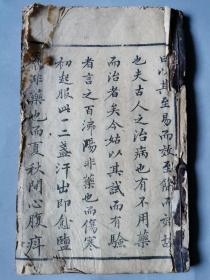 由以其至易而效至
也夫古人之治病也有不用藥
而治者矣今姑以其試而有驗
者言之百沸陽非藥也而傷寒
初起服此一二盏汗出即愈鹽
非藥也而夏秋間心腹痛